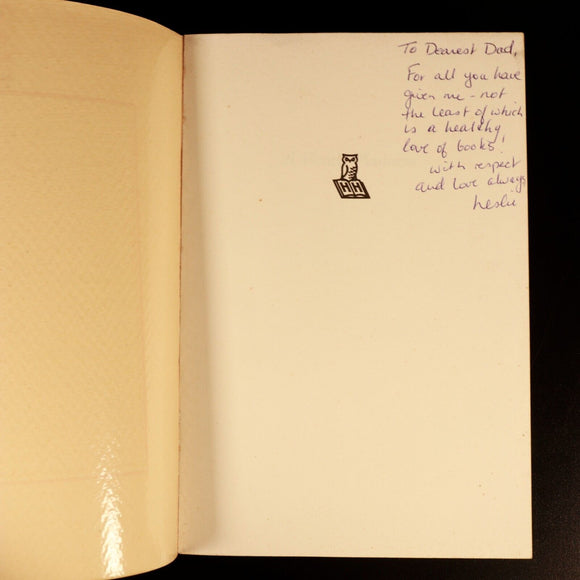 To Dearest Dad,
For all you have
given me - not
the least of which
is a healthy
love of books!
with respect
and love always
Leslie
HH